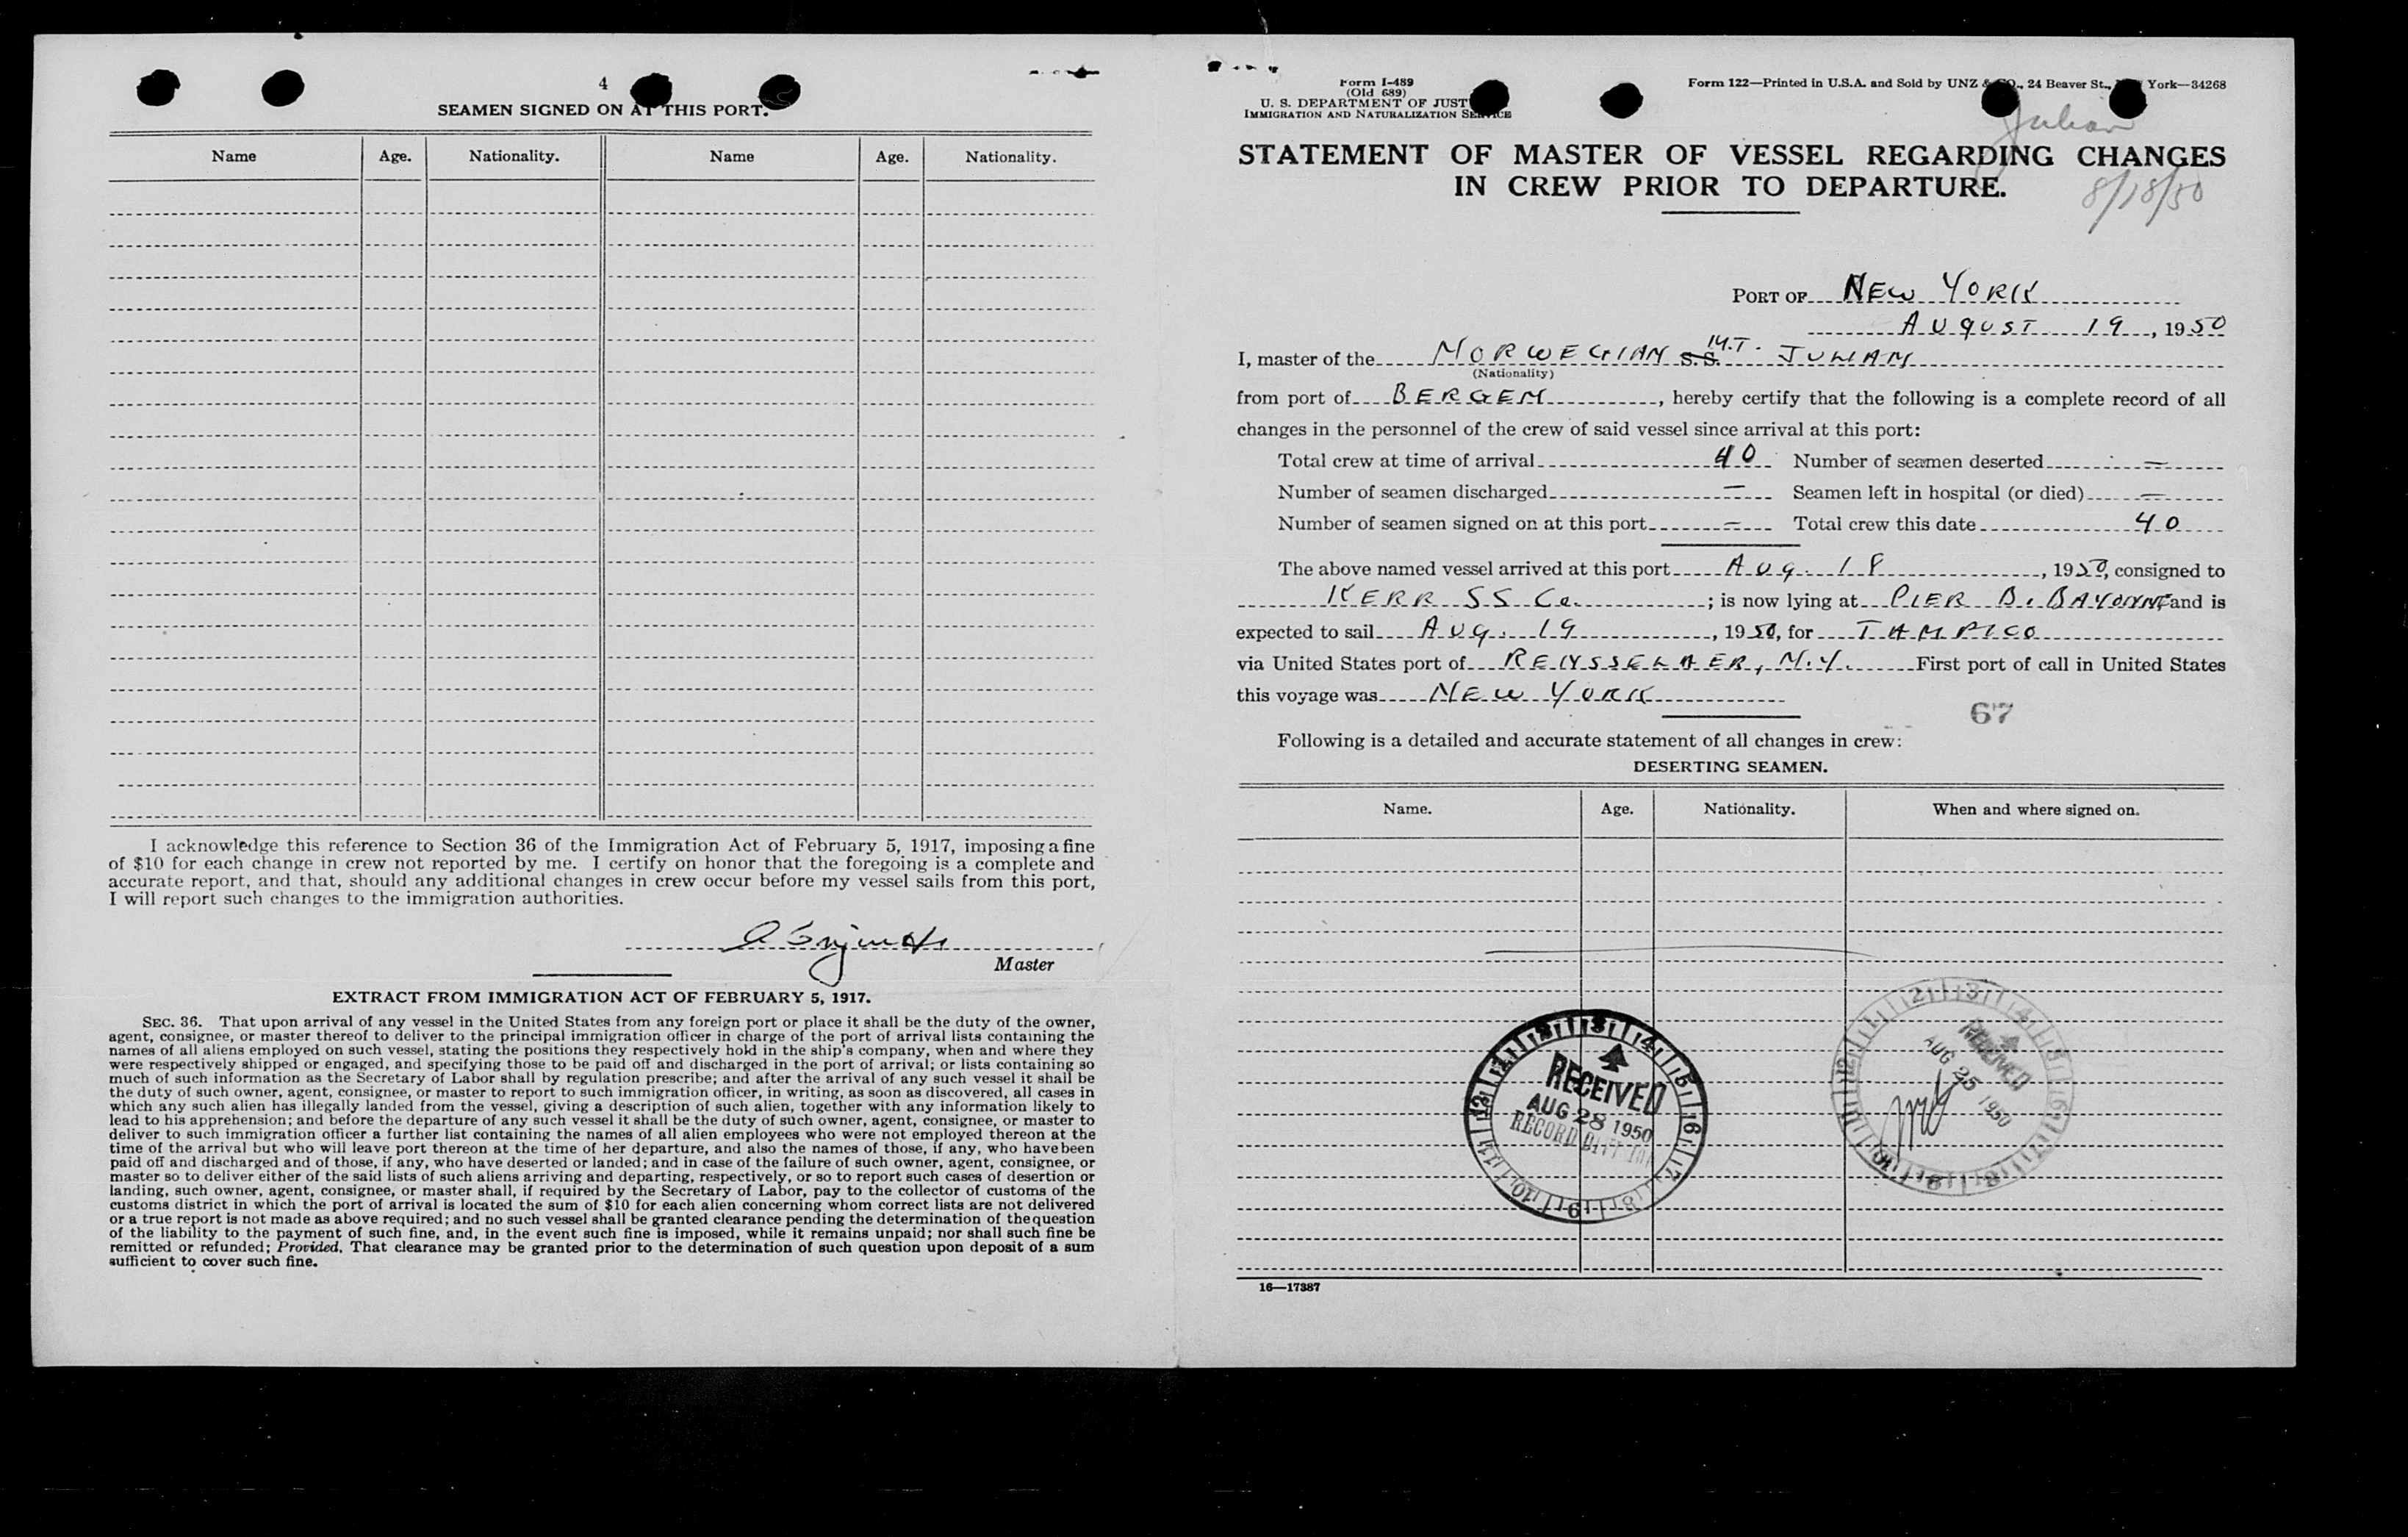 4
SEAMEN SIGNED ON AT THIS PORT.
Name Age. Nationality. Name Age. Nationality.
I acknowledge this reference to Section 36 of the Immigration Act of February 5, 1917, imposing a fine
of $10 for each change in crew not reported by me. I certify on honor that the foregoing is a complete and
accurate report, and that, should any additional changes in crew occur before my vessel sails from this port,
I will report such changes to the immigration authorities.
Master
EXTRACT FROM IMMIGRATION ACT OF FEBRUARY 5, 1917.
SEC. 36. That upon arrival of any vessel in the United States from any foreign port or place it shall be the duty of the owner,
agent, consignee, or master thereof to deliver to the principal immigration officer in charge of the port of arrival lists containing the
names of all aliens employed on such vessel, stating the positions they respectively hold in the ship's company, when and where they
were respectively shipped or engaged, and specifying those to be paid off and discharged in the port of arrival; or lists containing so
much of such information as the Secretary of Labor shall by regulation prescribe; and after the arrival of any such vessel it shall be
the duty of such owner, agent, consignee, or master to report to such immigration officer, in writing, as soon as discovered, all cases in
which any such alien has illegally landed from the vessel, giving a description of such alien, together with any information likely to
lead to his apprehension; and before the departure of any such vessel it shall be the duty of such owner, agent, consignee, or master to
deliver to such immigration officer a further list containing the names of all alien employees who were not employed thereon at the
time of the arrival but who will leave port thereon at the time of her departure, and also the names of those, if any, who have been
paid off and discharged and of those, if any, who have deserted or landed; and in case of the failure of such owner, agent, consignee, or
master so to deliver either of the said lists of such aliens arriving and departing, respectively, or so to report such cases of desertion or
landing, such owner, agent, consignee, or master shall, if required by the Secretary of Labor, pay to the collector of customs of the
customs district in which the port of arrival is located the sum of $10 for each alien concerning whom correct lists are not delivered
or a true report is not made as above required; and no such vessel shall be granted clearance pending the determination of the question
of the liability to the payment of such fine, and, in the event such fine is imposed, while it remains unpaid; nor shall such fine be
remitted or refunded; Provided, That clearance may be granted prior to the determination of such question upon deposit of a sum
sufficient to cover such fine.
Form I-489
(Old 689)
U. S. DEPARTMENT OF JUST
IMMIGRATION AND NATURALIZATION SERVICE
Form 122—Printed in U.S.A. and Sold by UNZ & CO., 24 Beaver St., York—34268
Julian
STATEMENT OF MASTER OF VESSEL REGARDING CHANGES
IN CREW PRIOR TO DEPARTURE.
8/18/50
PORT OF NEW YORK
AUGUST 19, 1950
I, master of the NORWEGIAN S.S. M.T. JULIAN
(Nationality)
from port of BERGEN, hereby certify that the following is a complete record of all
changes in the personnel of the crew of said vessel since arrival at this port:
Total crew at time of arrival 40 Number of seamen deserted —
Number of seamen discharged — Seamen left in hospital (or died) —
Number of seamen signed on at this port — Total crew this date 40
The above named vessel arrived at this port Aug. 18, 1950, consigned to
KERR SS Co.; is now lying at PIER B. BAYONNE and is
expected to sail AUG. 19, 1950, for TAMPICO
via United States port of RENSSELAER, N.Y. First port of call in United States
this voyage was NEW YORK
67
Following is a detailed and accurate statement of all changes in crew:
DESERTING SEAMEN.
Name. Age. Nationality. When and where signed on.
RECEIVED
AUG 28 1950
RECORD
RECEIVED
AUG 25 1950
16—17387